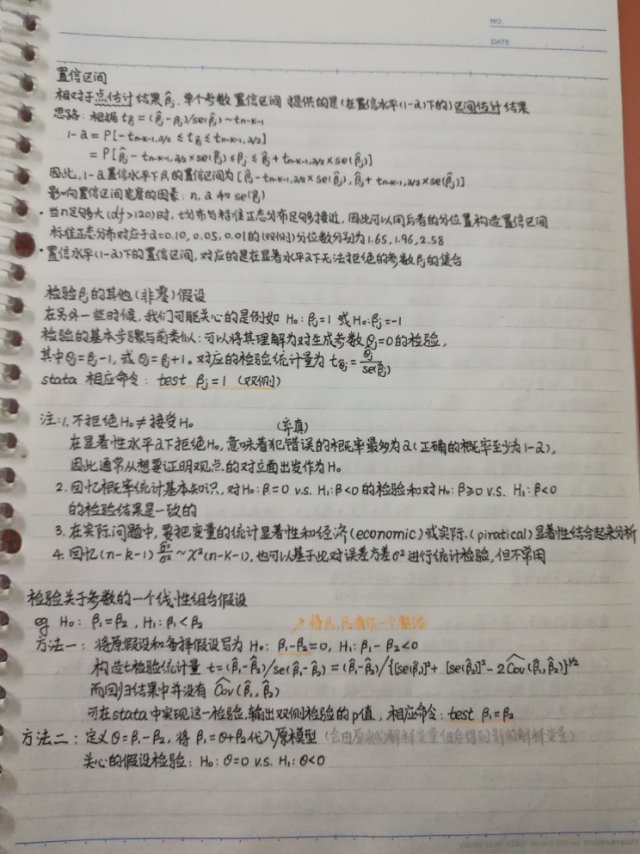 NO.
DATE
置信区间
相对于点估计结果β̂j, 单个参数置信区间提供的是(在置信水平(1-α)下的)区间估计结果
思路: 根据 tβ̂j = (β̂j-βj)/se(β̂j) ~ tn-k-1
1-α = P[-tn-k-1,α/2 ≤ tβ̂j ≤ tn-k-1,α/2]
= P[β̂j - tn-k-1,α/2 × se(β̂j) ≤ βj ≤ β̂j + tn-k-1,α/2 × se(β̂j)]
因此, 1-α置信水平下βj的置信区间为[β̂j - tn-k-1,α/2 × se(β̂j), β̂j + tn-k-1,α/2 × se(β̂j)]
影响置信区间宽度的因素: n, α 和 se(β̂j)
· 当n足够大(df>120)时, t分布与标准正态分布足够接近, 因此可以用后者的分位置构造置信区间
标准正态分布对应于α=0.10, 0.05, 0.01的(双侧)分位数分别为1.65, 1.96, 2.58
· 置信水平(1-α)下的置信区间, 对应的是在显著水平α下无法拒绝的参数βj的集合
检验βj的其他(非零)假设
在另外一些时候, 我们可能关心的是例如 H0: βj=1 或 H0: βj=-1
检验的基本步骤与前类似: 可以将其理解为对生成参数θj=0的检验,
其中θj=βj-1, 或θj=βj+1. 对应的检验统计量为 tθ̂j = θ̂j/se(β̂j)
stata 相应命令: test βj=1 (双侧)
注: 1. 不拒绝H0 ≠ 接受H0
(弃真)
在显著性水平α下拒绝H0, 意味着犯错误的概率最多为α(正确的概率至少为1-α),
因此通常从想要证明观点的对立面出发作为H0
2. 回忆概率统计基本知识, 对H0: β=0 v.s. H1: β<0 的检验和对H0: β≥0 v.s. H1: β<0
的检验结果是一致的
3. 在实际问题中, 要把变量的统计显著性和经济(economic)或实际(piratical)显著性结合起来分析
4. 回忆(n-k-1) σ̂²/σ² ~ χ²(n-k-1), 也可以基于此对误差方差σ²进行统计检验, 但不常用
检验关于参数的一个线性组合假设
eg H0: β1=β2, H1: β1<β2
↗将β1-β2看作一个整体
方法一: 将原假设和备择假设写为 H0: β1-β2=0, H1: β1-β2<0
构造t检验统计量 t=(β̂1-β̂2)/se(β̂1-β̂2) = (β̂1-β̂2)/{[se(β̂1)]²+[se(β̂2)]²-2Cov(β̂1,β̂2)}^1/2
而回归结果中并没有 Cov(β̂1,β̂2)
可在stata中实现这一检验, 输出双侧检验的p值, 相应命令: test β1=β2
方法二: 定义θ=β1-β2, 将β1=θ+β2代入原模型(会由原来的解释变量组合得到新的解释变量)
关心的假设检验: H0: θ=0 v.s. H1: θ<0